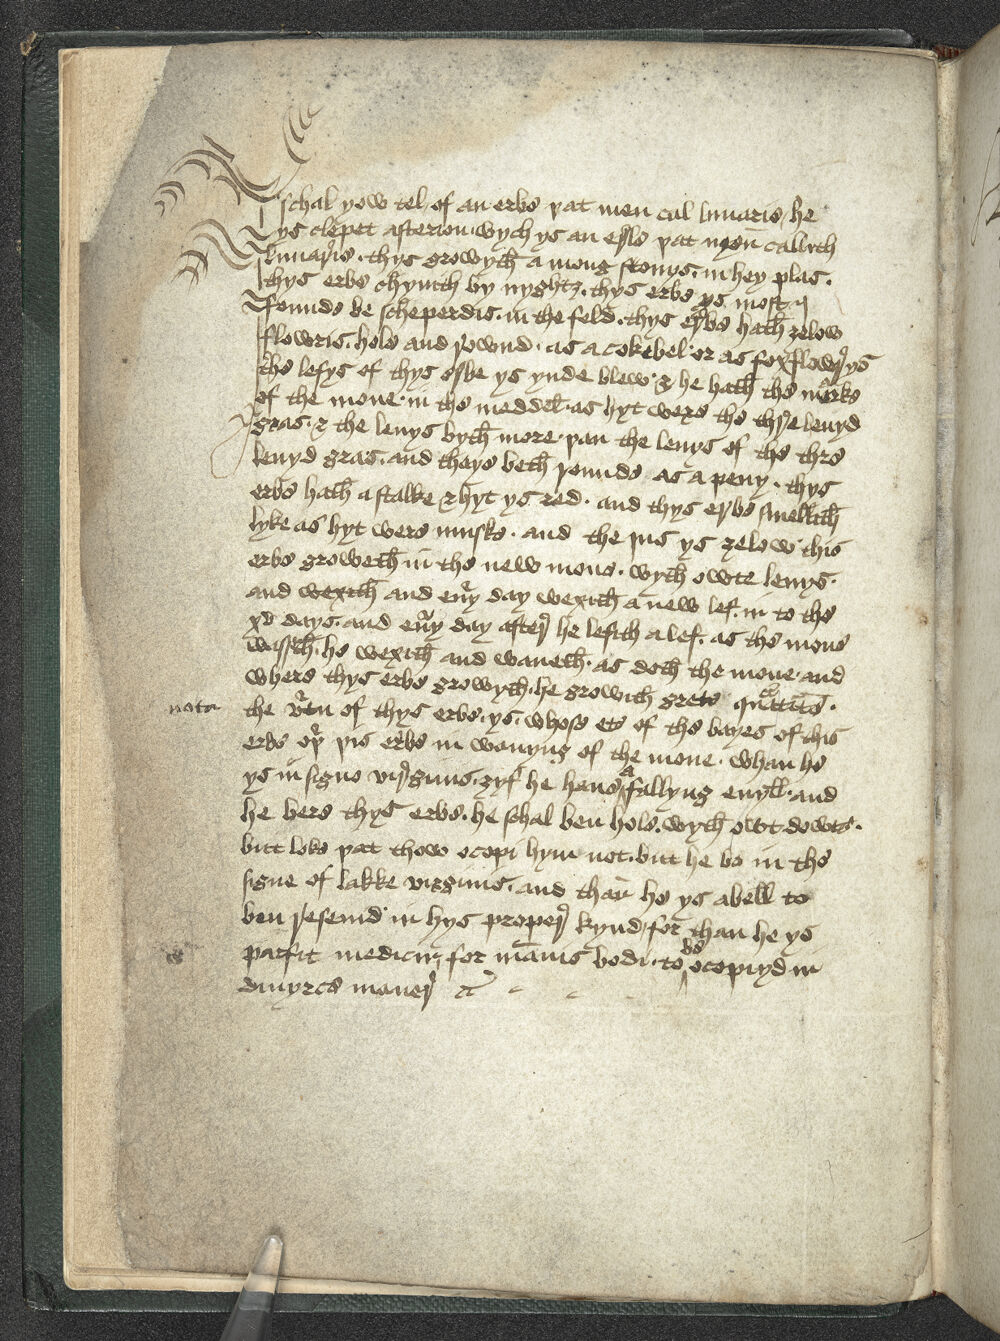 I schal yow tel of an erbe þat men cal lunarie he
ys clepet asterion wych ys an effe þat men callyth
lunarie . thys growyth a mong stonys . in hey plas .
thys erbe chynith by nyghtz . thys erbe ys most
founde be scheperdis . in the feld . thys erbe hath zelow
flowris . hole and rownd . as a cokebel or as foxflowrys
the lefys of thys erbe ys ynde blew & he hath the marke
of the mone in the meddel as hyt were the thre levyd
gras . & the levys byth more þan the levys of the thre
levyd gras and thays beth rounde as a peny . thys
erbe hath a stalke & hyt ys red . and thys erbe smellith
lyke as hyt were muske . and the jus ys zelow this
erbe groweth in the new mone . wyth owte levys .
and wexith and euery day wexith a new lef . in to the
xv days . and euery day after he lesith a lef . as the mone
he wexith and waneth . as doth the mone and
where thys erbe growyth . he growith grete quantite .
nota
the vertu of thys erbe . ys . whose ete of the bayes of this
erbe or þis erbe in wanyng of the mone . whan he
ys in signe virginis . zyf he haue a fallyng evyll . and
he bere thys erbe . he schal ben hole . wyth owt dowte .
butt loke þat thow ocopi hym not . but he be in the
signe of lakke virginis . and than he ys abell to
ben reseuid in hys proper kynd for than he ys
parfit medicin for manis bodi . to be ocopiyd in
diuyrce maner